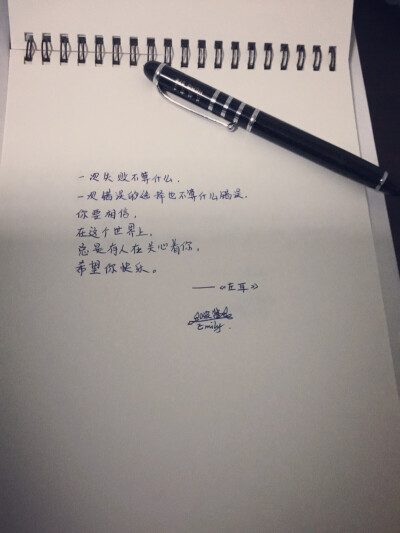 一次失败不算什么，
一次错误的选择也不算什么
你要相信，
在这个世界上，
总是有人在关心着你。
希望你快乐。
——《左耳》
Emily.